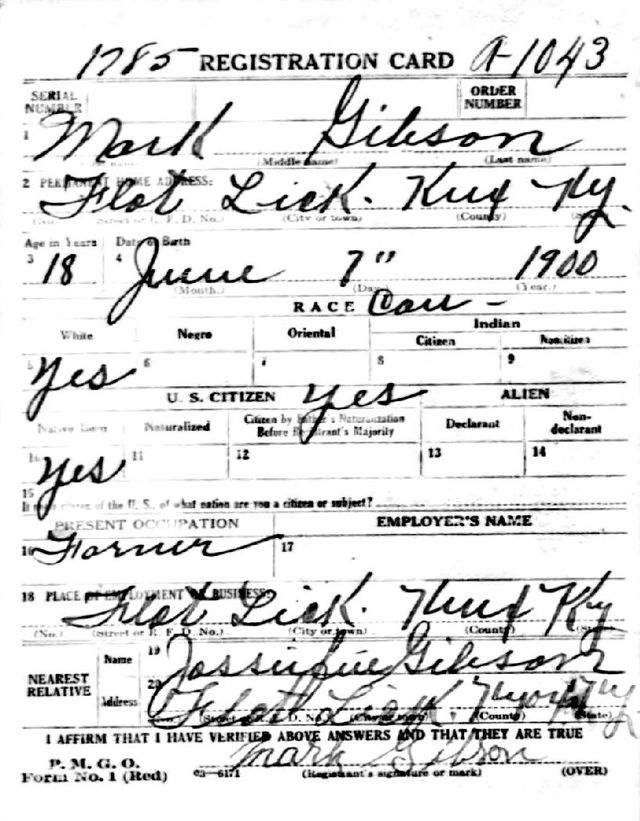 1785 REGISTRATION CARD A-1043
SERIAL NUMBER ORDER NUMBER
1 Mark Gibson
(Middle name) (Last name)
2 PERMANENT HOME ADDRESS:
Flat Lick. Knx Ky.
(No.) (Street or R. F. D. No.) (City or town) (County) (State)
Age in Years Date of Birth
3 18 4 June 7" 1900
(Month.) (Day.) (Year.)
RACE Cau -
White Negro Oriental Indian
Citizen Noncitizen
5 Yes 6 7 8 9
U. S. CITIZEN Yes ALIEN
Native Born Naturalized Citizen by Father's Naturalization Before Registrant's Majority Declarant Non-declarant
10 Yes 11 12 13 14
15
If not a citizen of the U. S., of what nation are you a citizen or subject?
PRESENT OCCUPATION EMPLOYER'S NAME
16 Farmer 17
18 PLACE OF EMPLOYMENT OR BUSINESS:
Flat Lick. Knx Ky
(No.) (Street or R. F. D. No.) (City or town) (County) (State)
NEAREST RELATIVE Name 19 Gibson
Address 20 Flat Lick. Ky
(No.) (Street or R. F. D. No.) (City or town) (County) (State)
I AFFIRM THAT I HAVE VERIFIED ABOVE ANSWERS AND THAT THEY ARE TRUE
P. M. G. O.
Form No. 1 (Red) 03-6171 Mark Gibson
(Registrant's signature or mark) (OVER)